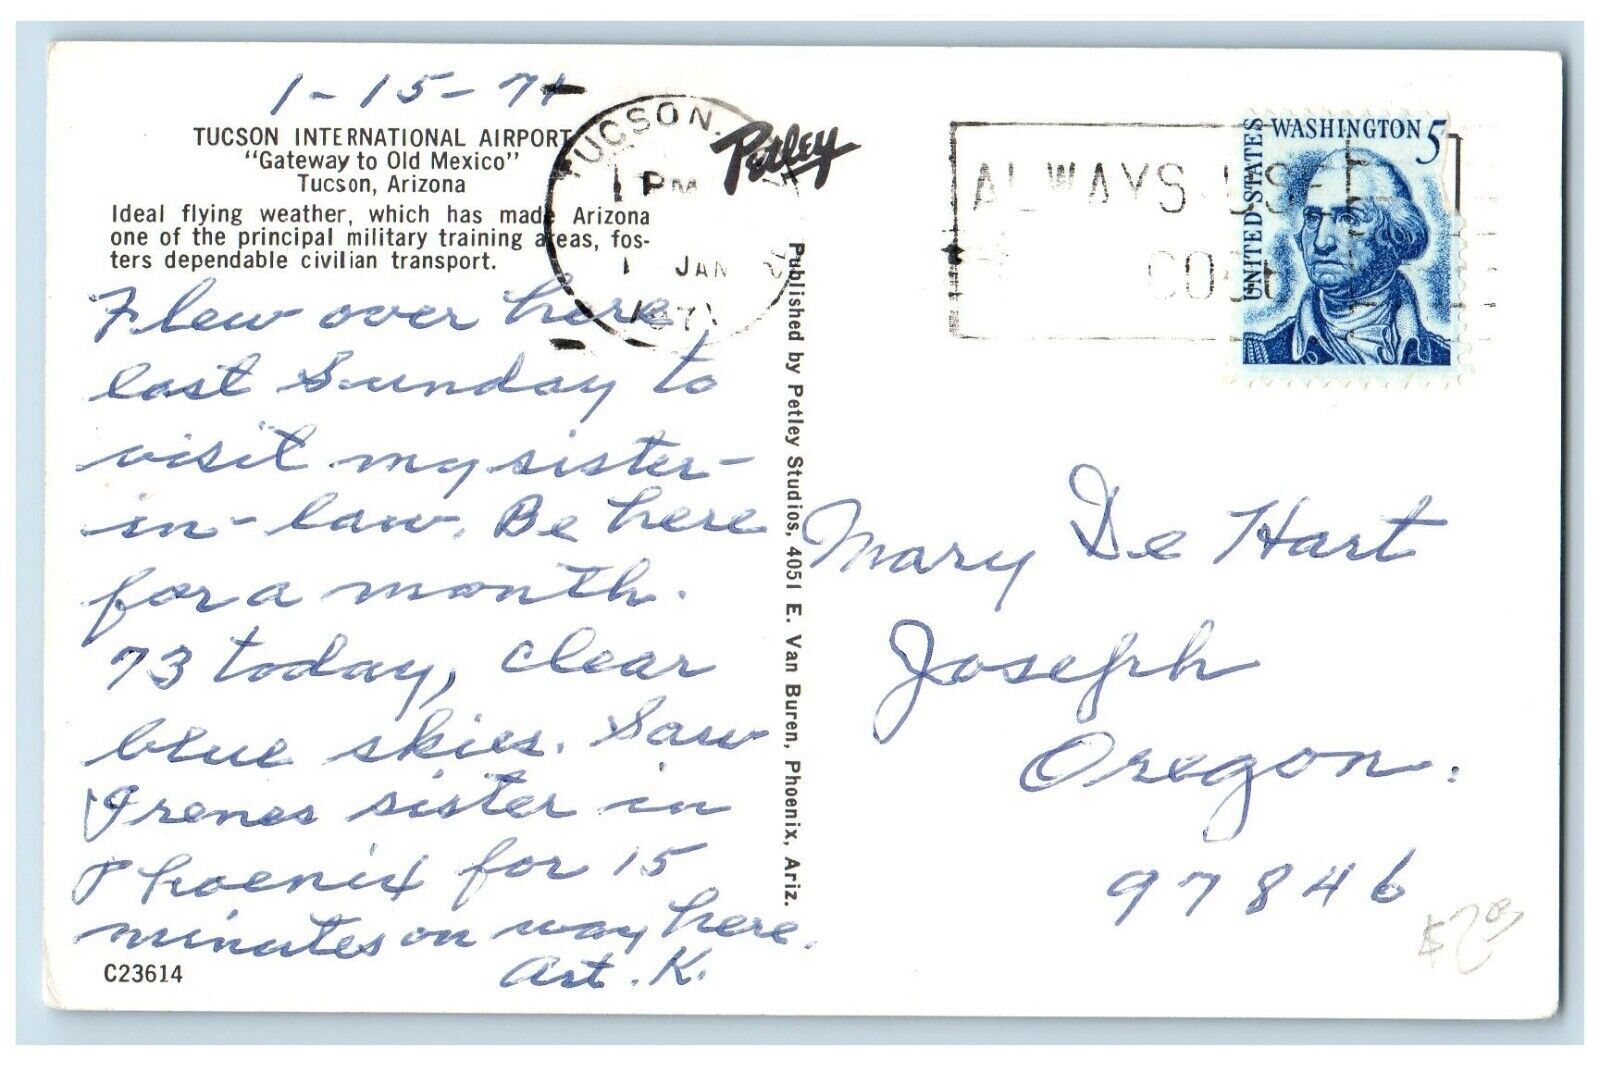 1-15-71
TUCSON INTERNATIONAL AIRPORT
"Gateway to Old Mexico"
Tucson, Arizona
Ideal flying weather, which has made Arizona
one of the principal military training areas, fos-
ters dependable civilian transport.
Flew over here
last Sunday to
visit my sister-
in-law. Be here
for a month.
73 today, clear
blue skies. Saw
Irenes sister in
Phoenix for 15
minutes on way here.
Art. K.
C23614
TUCSON,
PM
JAN
Petley
Published by Petley Studios, 4051 E. Van Buren, Phoenix, Ariz.
ALWAYS USE
UNITED STATES
WASHINGTON 5
Mary De Hart
Joseph
Oregon.
97846